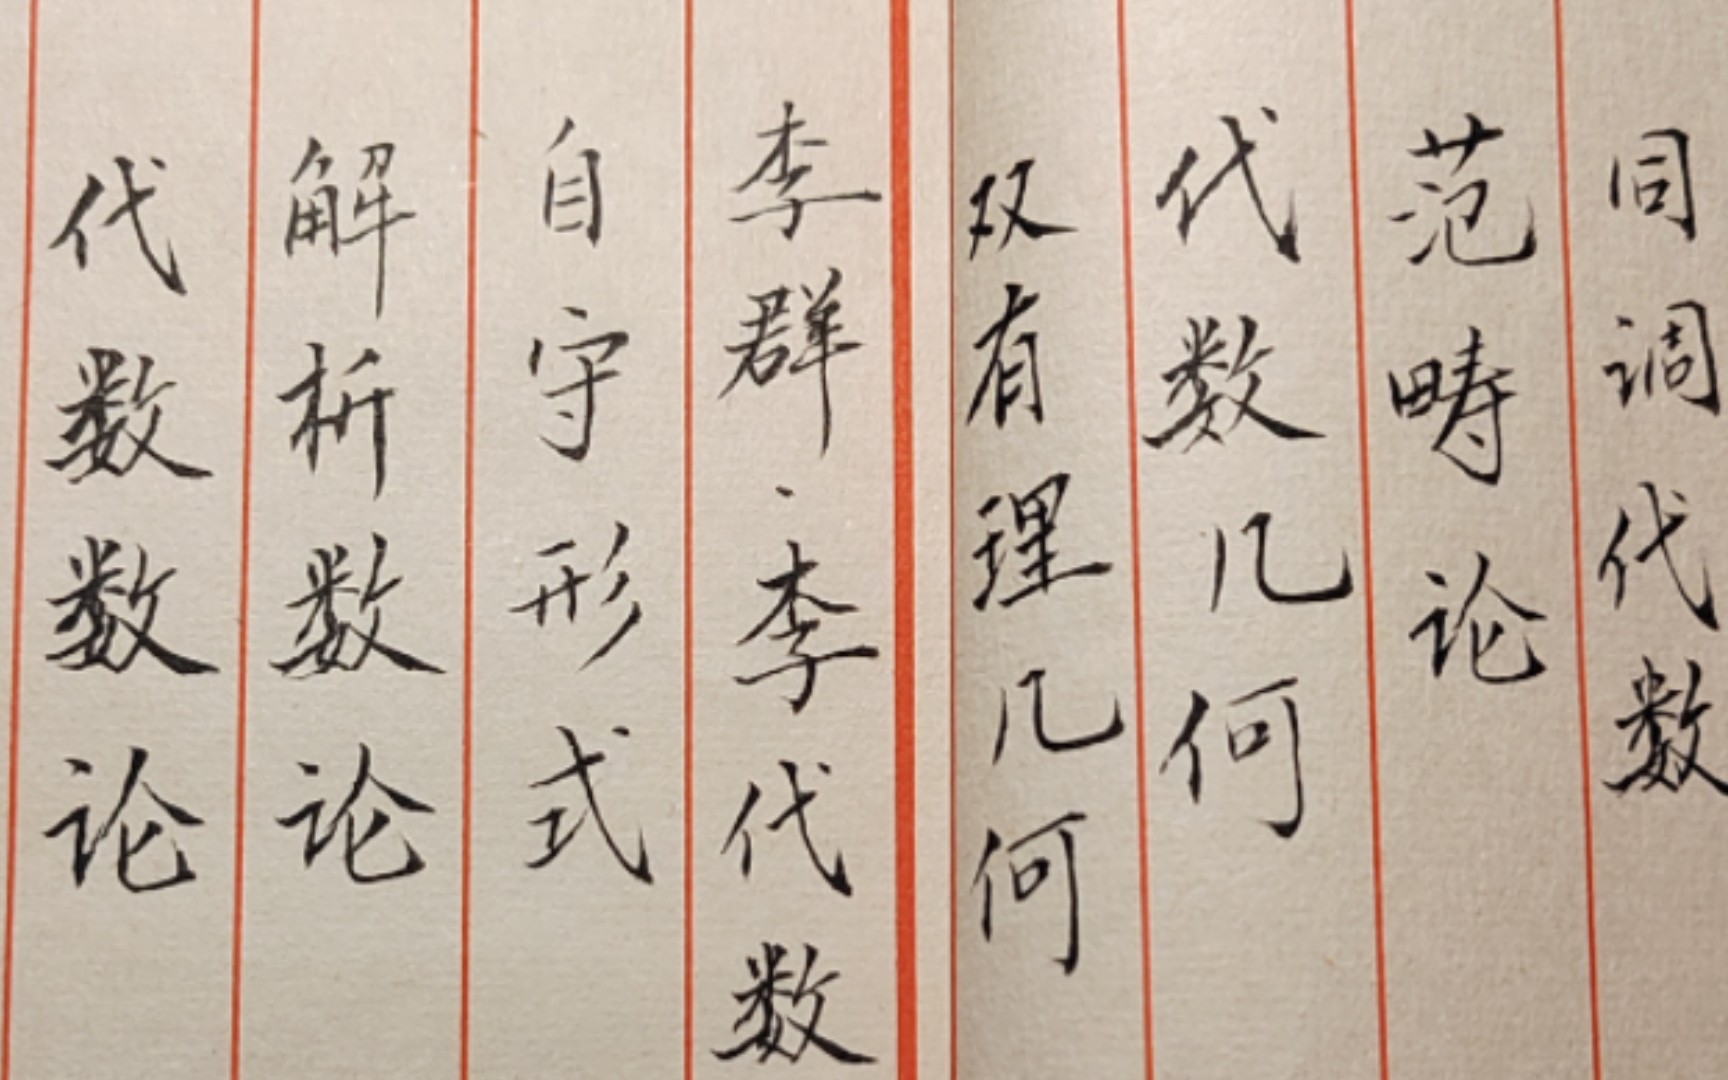 同调代数
范畴论
代数几何
双有理几何
李群·李代数
自守形式
解析数论
代数数论